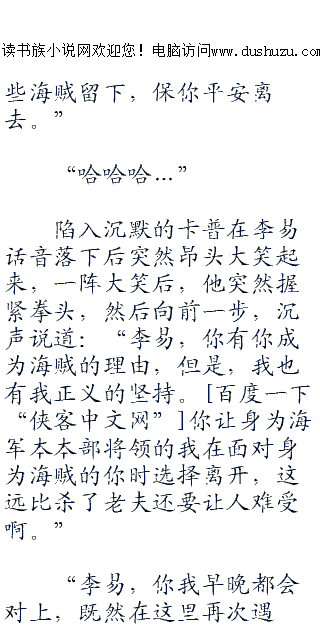 读书族小说网欢迎您！电脑访问www.dushuzu.com
些海贼留下，保你平安离
去。”
“哈哈哈…”
陷入沉默的卡普在李易
话音落下后突然昂头大笑起
来，一阵大笑后，他突然握
紧拳头，然后向前一步，沉
声说道：“李易，你有你成
为海贼的理由，但是，我也
有我正义的坚持。[百度一下
“侠客中文网”]你让身为海
军本本部将领的我在面对身
为海贼的你时选择离开，这
远比杀了老夫还要让人难受
啊。”
“李易，你我早晚都会
对上，既然在这里再次遇